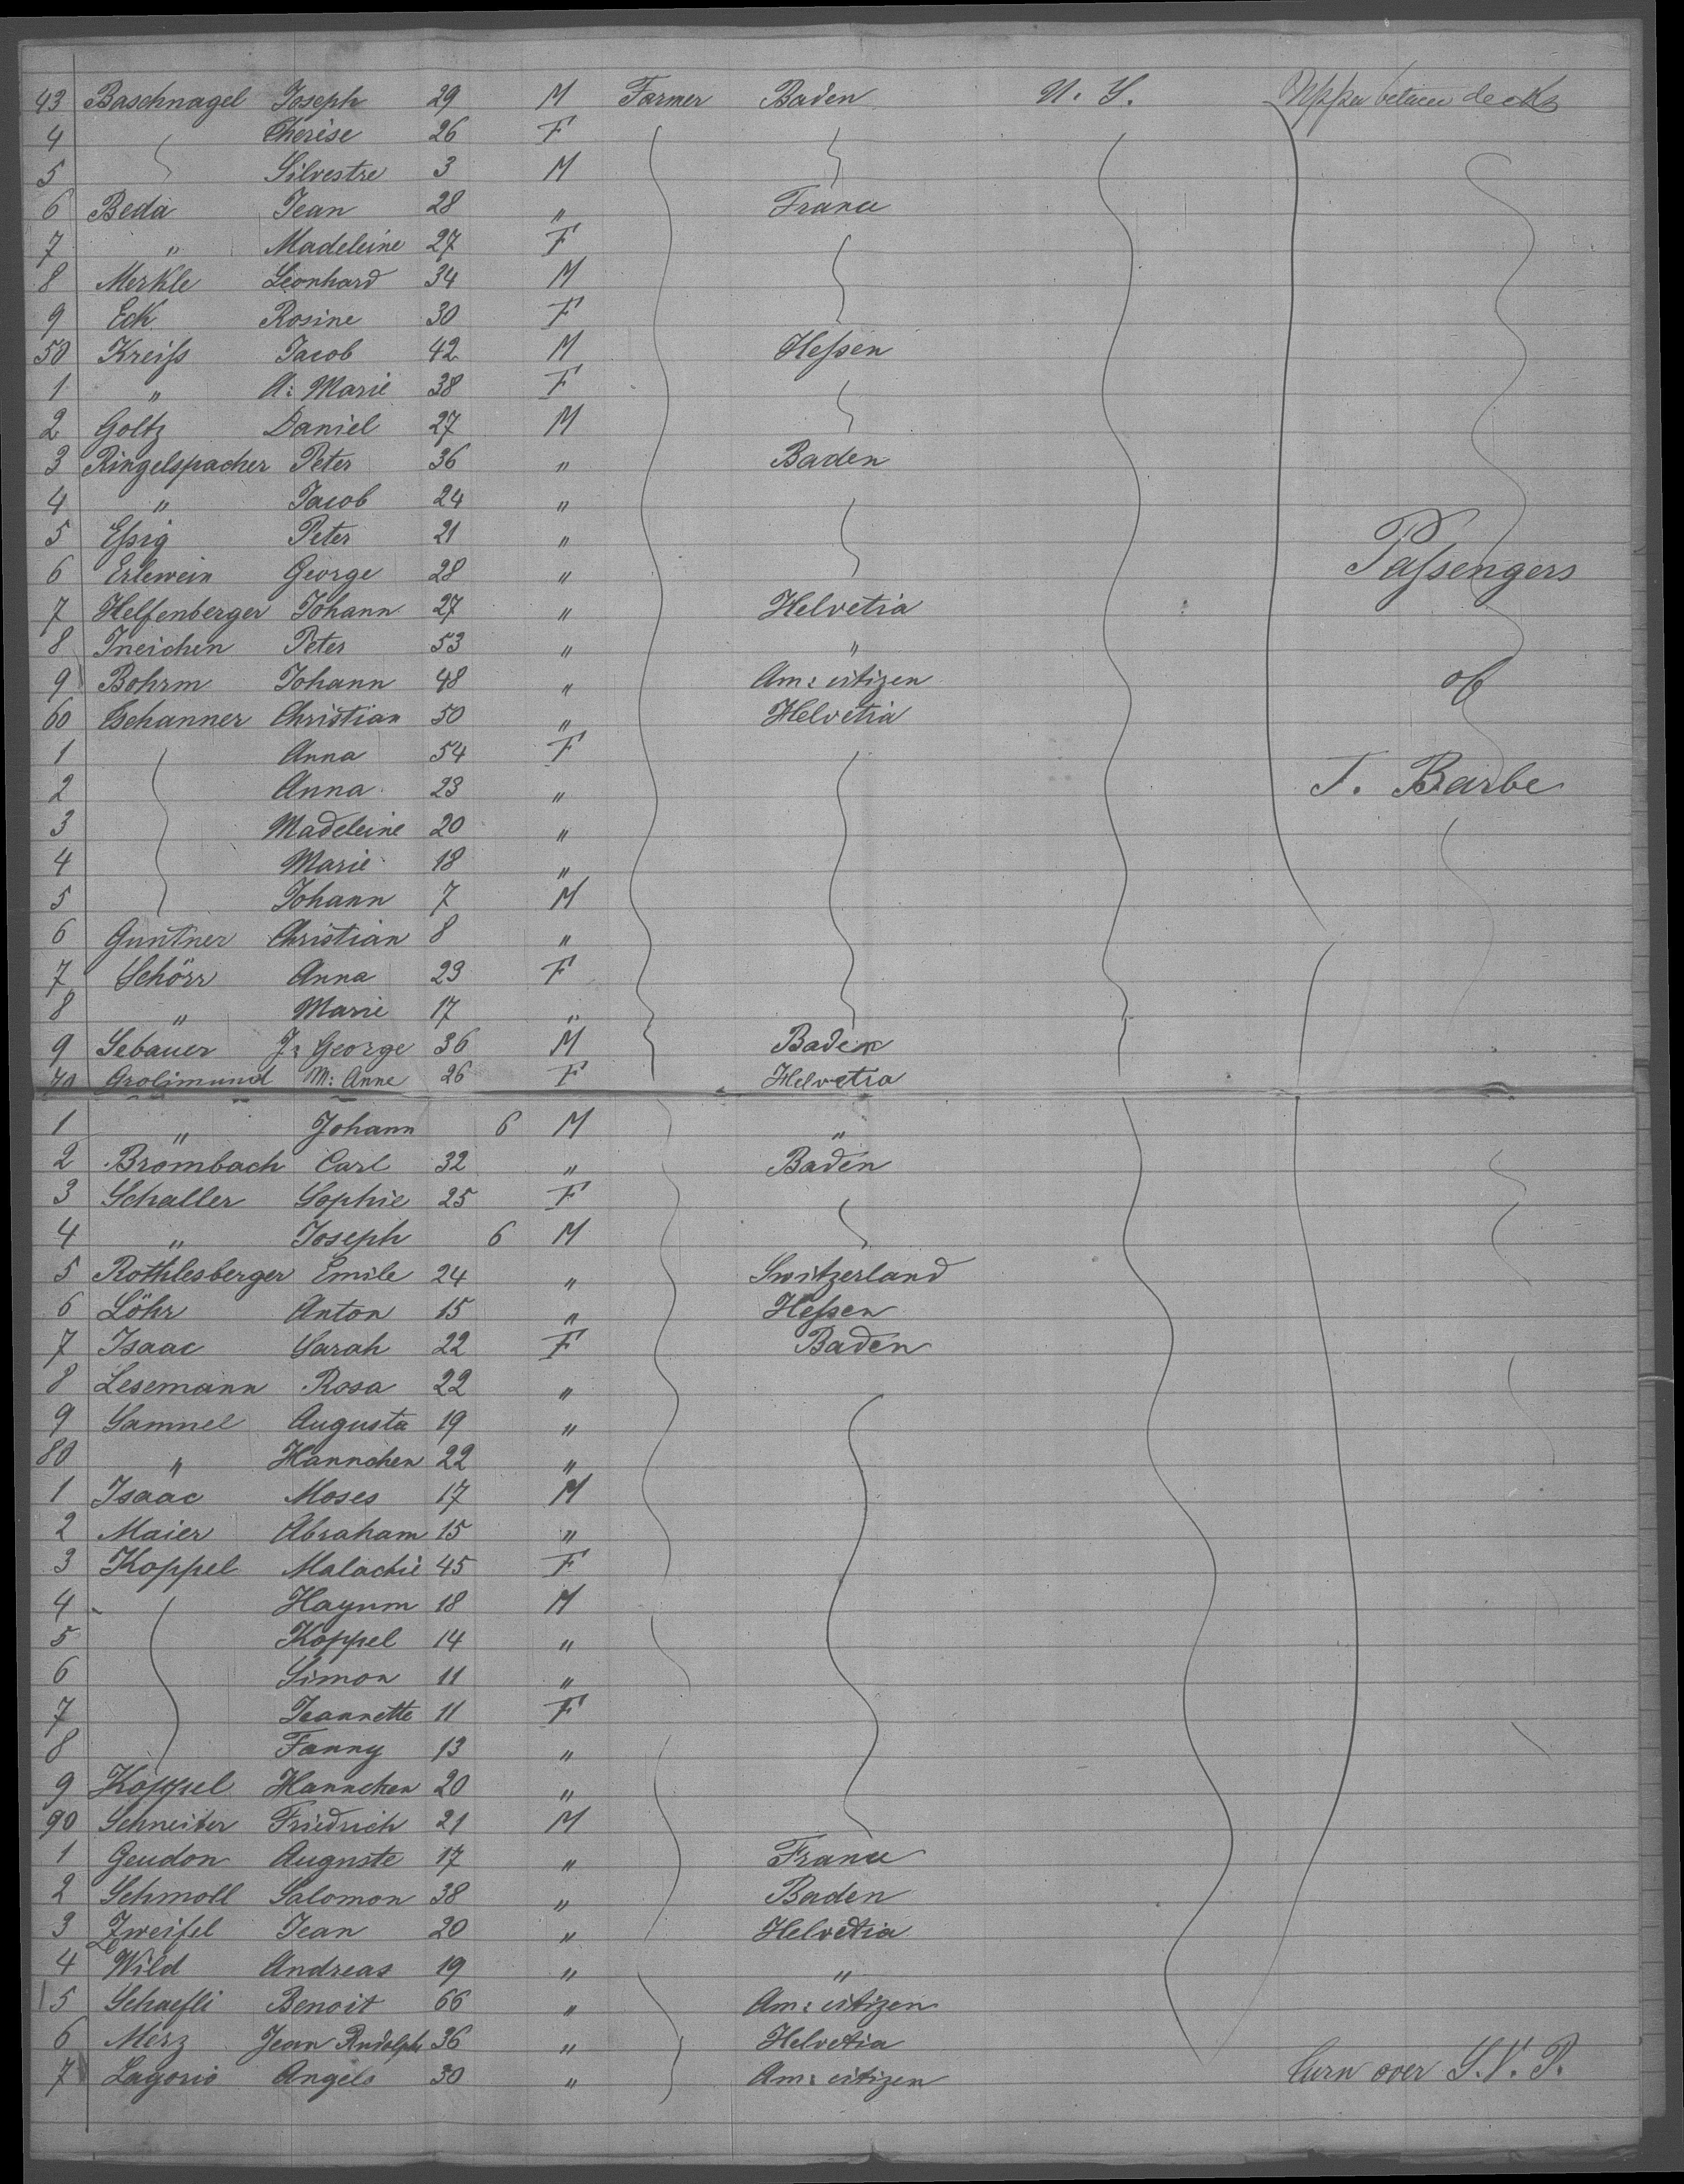 43 Baschnagel Joseph 29 M Farmer Baden U. S. Upper between decks
4 Therése 26 F
5 Silvestre 3 M
6 Beda Jean 28 " France
7 " Madeleine 27 F
8 Merkle Leonhard 34 M
9 Eck Rosine 30 F
50 Kreiſs Jacob 42 M Heſsen
1 " A: Marie 38 F
2 Goltz Daniel 27 M
3 Ringelspacher Peter 36 " Baden
4 " Jacob 24 "
5 Eſsig Peter 21 "
6 Erlewein George 28 " Paſsengers
7 Helfenberger Johann 27 " Helvetia
8 Ineichen Peter 53 " "
9 Bohrm Johann 48 " Am: citizen of
60 Tschanner Christian 50 " Helvetia
1 Anna 54 F
2 Anna 23 " T. Barbe
3 Madeleine 20 "
4 Marie 18 "
5 Johann 7 M
6 Guntner Christian 8 "
7 Schörr Anna 23 F
8 " Marie 17 "
9 Sebauer J: George 36 M Baden
70 Grolimund M: Anne 26 F Helvetia
1 " Johann 6 M "
2 Brombach Carl 32 " Baden
3 Schaller Sophie 25 F
4 " Joseph 6 M
5 Röthlesberger Emile 24 " Switzerland
6 Löhr Anton 15 " Heſsen
7 Isaac Sarah 22 F Baden
8 Lesemann Rosa 22 "
9 Samuel Augusta 19 "
80 " Hannchen 22 "
1 Isaac Moses 17 M
2 Maier Abraham 15 "
3 Koppel Malachie 45 F
4 Hayum 18 M
5 Koppel 14 "
6 Simon 11 "
7 Jeannette 11 F
8 Fanny 13 "
9 Koppel Hannchen 20 "
90 Schneiter Friedrich 21 M
1 Geudon Auguste 17 " France
2 Schmoll Salomon 38 " Baden
3 Zweifel Jean 20 " Helvetia
4 Wild Andreas 19 " "
5 Schaefli Benoit 66 " Am: citizen
6 Merz Jean Rudolph 36 " Helvetia
7 Lagorio Angelo 30 " Am: citizen Turn over S.V.P.